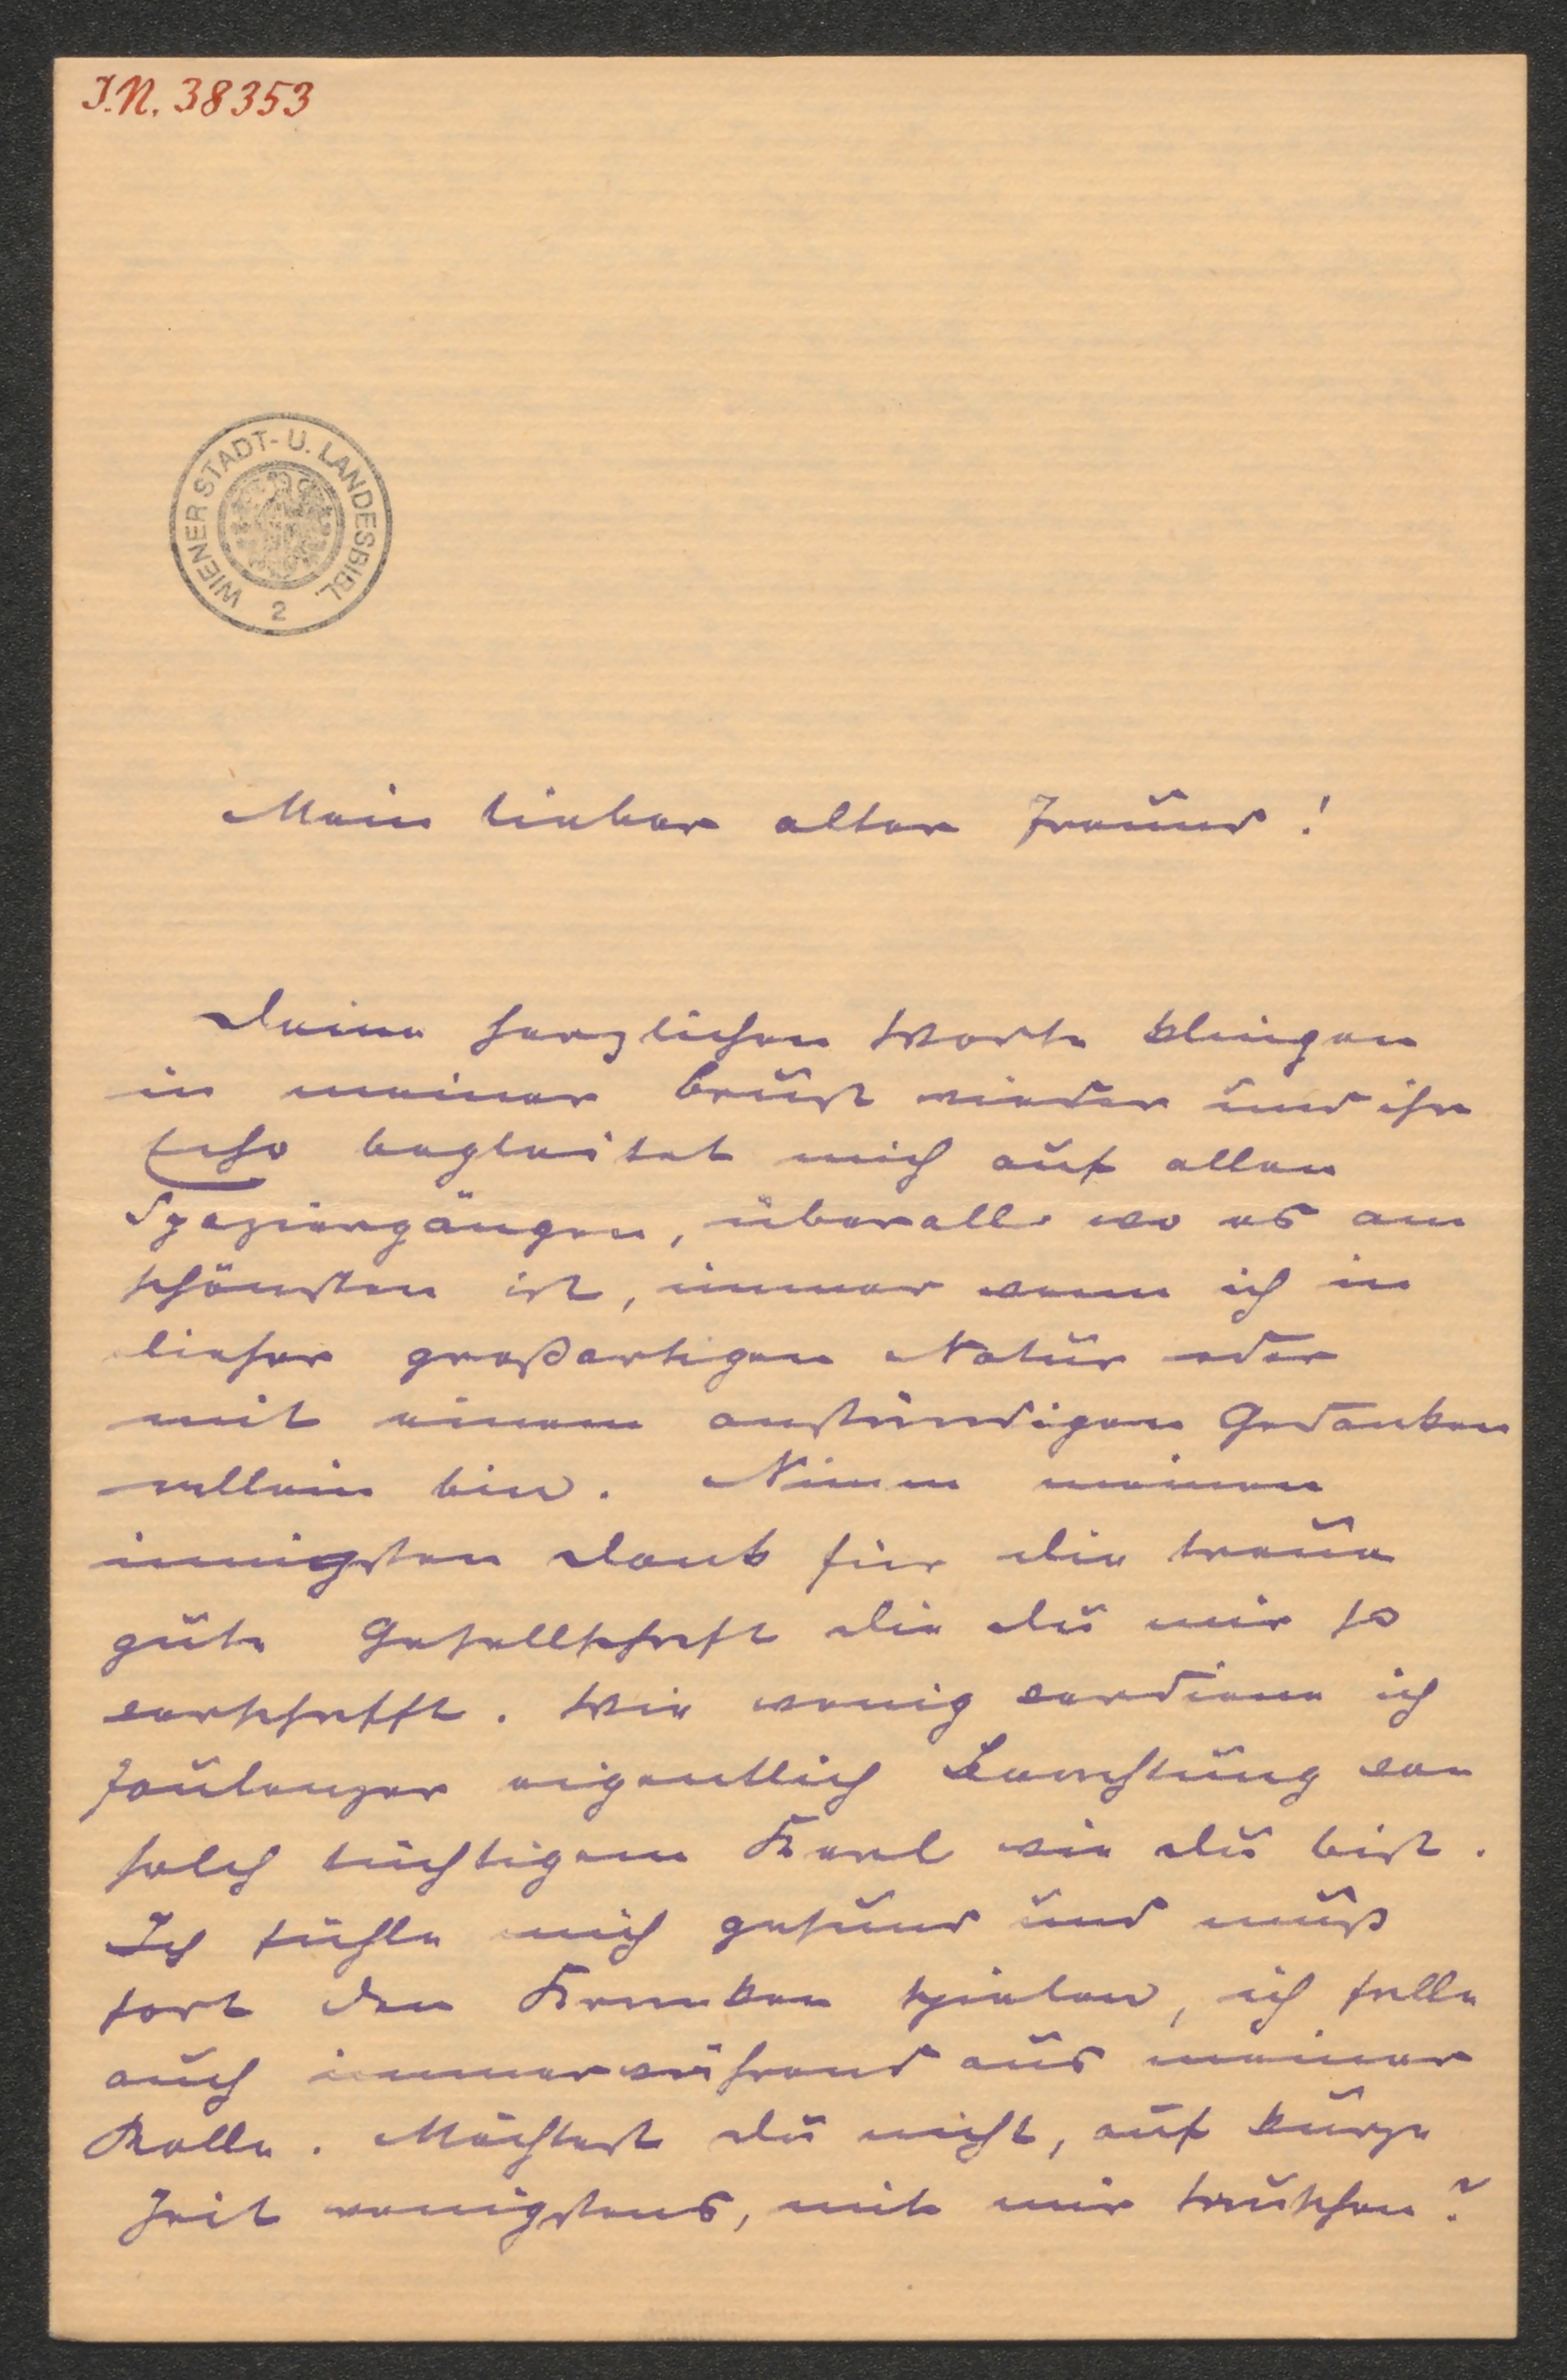 I.N. 38353
WIENER STADT- U. LANDESBIBL.
2
Mein lieber alter Freund!
Deine herzlichen Worte klingen
in meiner Brust wieder und ihr
Echo begleitet mich auf allen
Spaziergängen, überall wo es am
schönsten ist, immer wenn ich in
dieser großartigen Natur oder
mit einem anständigen Gedanken
allein bin. Nimm meinen
innigsten Dank für die treue
gute Gesellschaft die du mir so
verschafft. Wie wenig verdiene ich
Faulenzer eigentlich Beachtung von
solch tüchtigem Kerl wie du bist.
Ich fühle mich gesund und muß
fort den Kranken spielen, ich falle
auch immerwährend aus meiner
Rolle. Möchtest du nicht, auf kurze
Zeit wenigstens, mit mir tauschen?